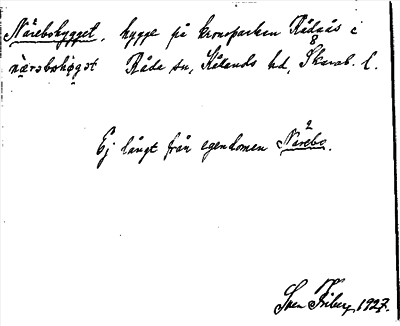 Närebohygget, hygge på kronoparken Rådaås i
nä̀rəbohøgət Råda sn, Kålands hd, Skarab. l.
Ej långt från egendomen Närebo.
Sven Friberg 1927.